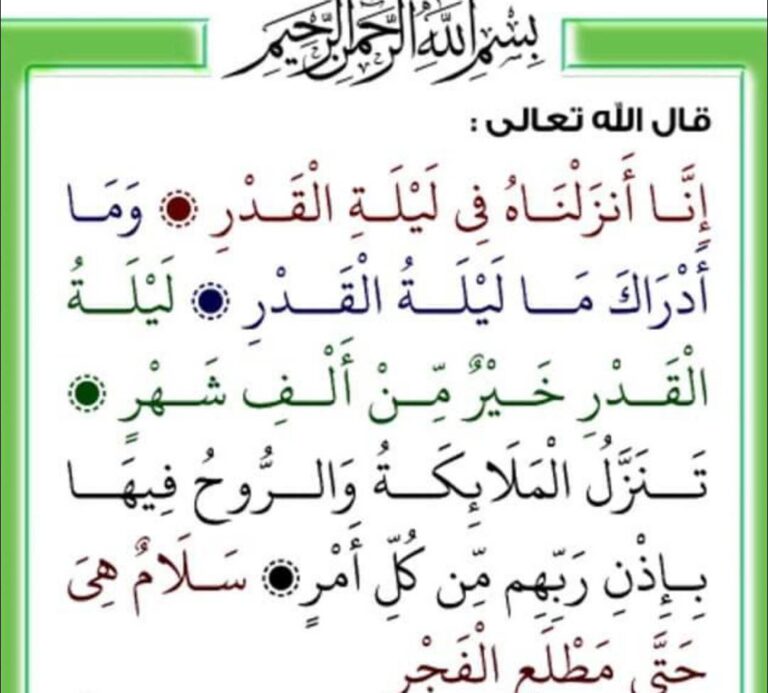 بِسْمِ اللَّهِ الرَّحْمَنِ الرَّحِيمِ
قال الله تعالى :
إِنَّا أَنزَلْنَاهُ فِى لَيْلَةِ الْقَدْرِ ۞ وَمَا
أَدْرَاكَ مَا لَيْلَةُ الْقَدْرِ ۞ لَيْلَةُ
الْقَدْرِ خَيْرٌ مِّنْ أَلْفِ شَهْرٍ ۞
تَنَزَّلُ الْمَلَائِكَةُ وَالرُّوحُ فِيهَا
بِإِذْنِ رَبِّهِم مِّن كُلِّ أَمْرٍ ۞ سَلَامٌ هِىَ
حَتَّى مَطْلَعِ الْفَجْرِ